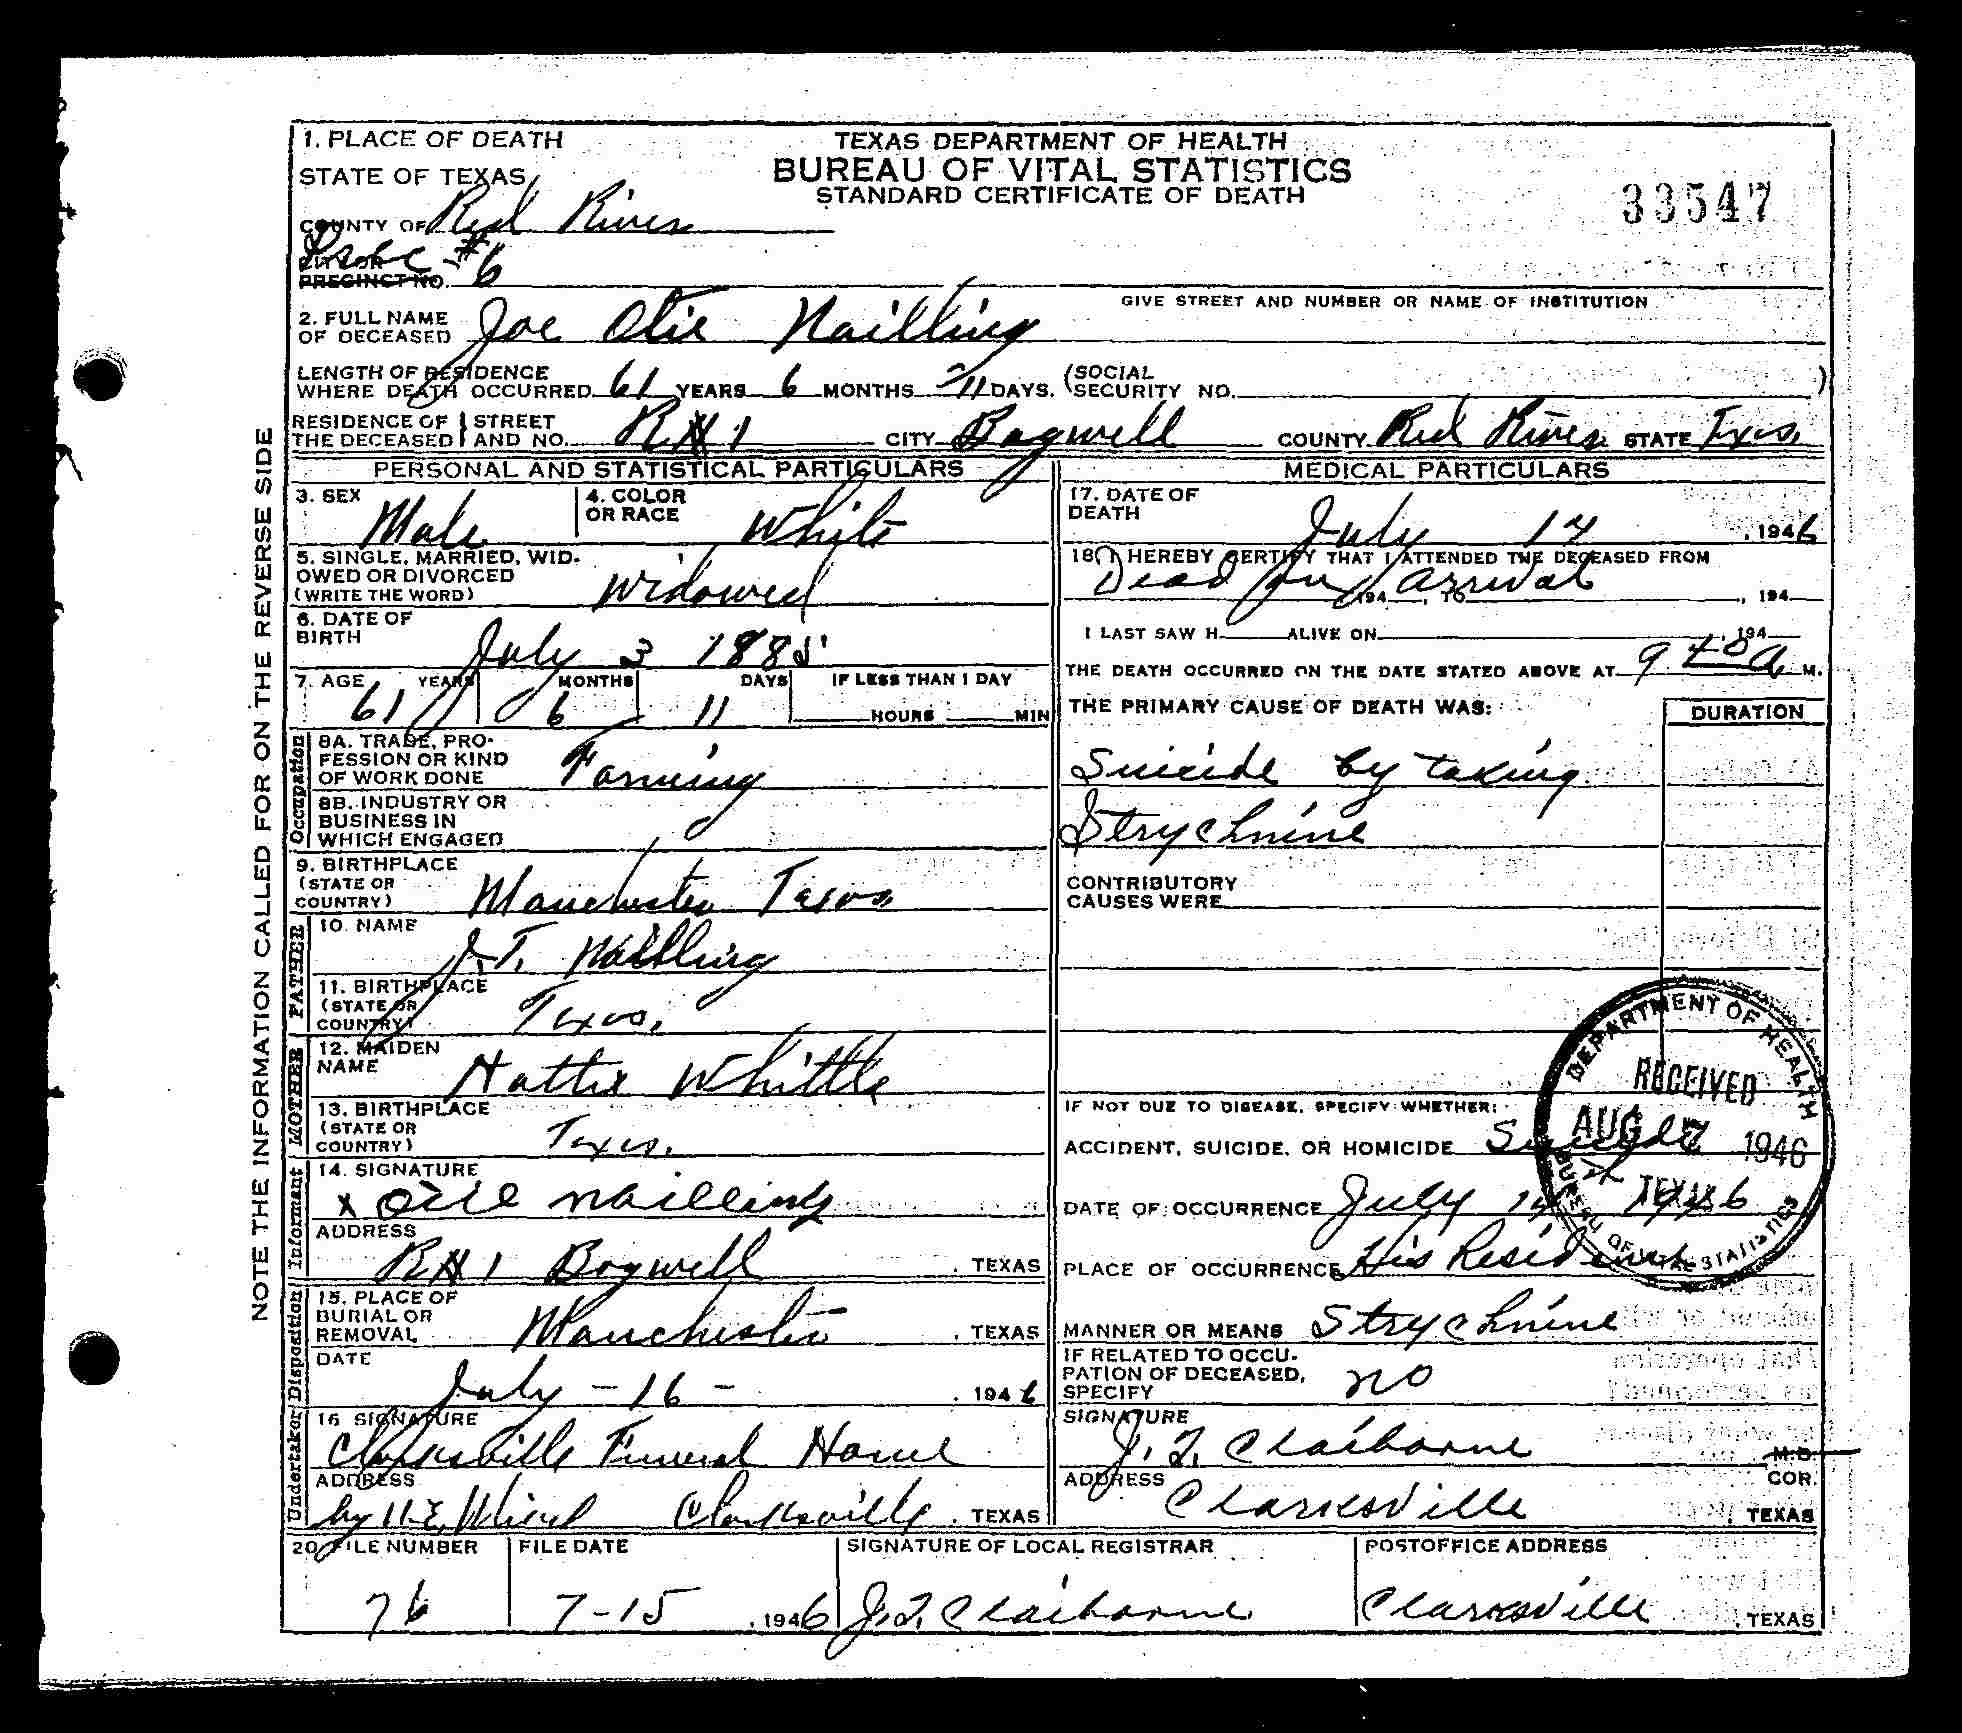 1. PLACE OF DEATH
STATE OF TEXAS
COUNTY OF Red River
CITY OR
PRECINCT NO. Prec #6
TEXAS DEPARTMENT OF HEALTH
BUREAU OF VITAL STATISTICS
STANDARD CERTIFICATE OF DEATH
33547
GIVE STREET AND NUMBER OR NAME OF INSTITUTION
2. FULL NAME
OF DECEASED Joe Otie Nailling
LENGTH OF RESIDENCE
WHERE DEATH OCCURRED 61 YEARS 6 MONTHS 11 DAYS. (SOCIAL SECURITY NO. )
RESIDENCE OF THE DECEASED STREET AND NO. R#1 CITY Bagwell COUNTY Red River STATE Texas
NOTE THE INFORMATION CALLED FOR ON THE REVERSE SIDE
PERSONAL AND STATISTICAL PARTICULARS
3. SEX Male
4. COLOR OR RACE White
5. SINGLE, MARRIED, WID-
OWED OR DIVORCED
(WRITE THE WORD) Widowed
6. DATE OF
BIRTH July 3 1885
7. AGE YEARS MONTHS DAYS IF LESS THAN 1 DAY
61 6 11 HOURS MIN
Occupation
8A. TRADE, PRO-
FESSION OR KIND
OF WORK DONE Farming
8B. INDUSTRY OR
BUSINESS IN
WHICH ENGAGED
9. BIRTHPLACE
(STATE OR
COUNTRY) Manchester Texas
FATHER
10. NAME
J.T. Nailling
11. BIRTHPLACE
(STATE OR
COUNTRY) Texas.
MOTHER
12. MAIDEN
NAME Hattie Whittle
13. BIRTHPLACE
(STATE OR
COUNTRY) Texas.
Informant
14. SIGNATURE
x Nailling
ADDRESS
R#1 Bagwell . TEXAS
Disposition
15. PLACE OF
BURIAL OR
REMOVAL Manchester . TEXAS
DATE
July - 16 - . 1946
Undertaker
16 SIGNATURE
Clarksville Funeral Home
ADDRESS
by Clarksville . TEXAS
MEDICAL PARTICULARS
17. DATE OF
DEATH July 14 , 1946
18. I HEREBY CERTIFY THAT I ATTENDED THE DECEASED FROM
Dead on arrival
194 , TO , 194
I LAST SAW H ALIVE ON , 194
THE DEATH OCCURRED ON THE DATE STATED ABOVE AT 9 40 A M.
THE PRIMARY CAUSE OF DEATH WAS: DURATION
Suicide by taking
Strychnine
CONTRIBUTORY
CAUSES WERE
IF NOT DUE TO DISEASE, SPECIFY WHETHER:
ACCIDENT, SUICIDE, OR HOMICIDE Suicide
DATE OF OCCURRENCE July 14 1946
PLACE OF OCCURRENCE His Residence
MANNER OR MEANS Strychnine
IF RELATED TO OCCU-
PATION OF DECEASED,
SPECIFY no
SIGNATURE
J. T. Claiborne M.D.
COR.
ADDRESS
Clarksville . TEXAS
DEPARTMENT OF HEALTH
RECEIVED
AUG 7 1946
TEXAS
BUREAU OF VITAL STATISTICS
20 FILE NUMBER FILE DATE SIGNATURE OF LOCAL REGISTRAR POSTOFFICE ADDRESS
76 7-15 , 1946 J. T. Claiborne Clarksville , TEXAS